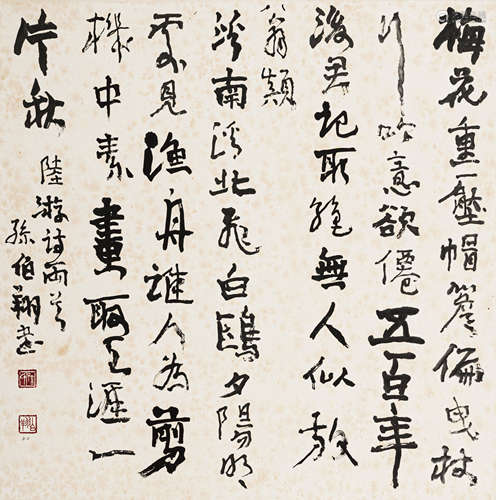 梅花重壓帽簷偏曳杖
行吟意欲僊五百年
後君記取絕無人似放
翁顛
溪南溪北飛白鷗夕陽明
處見漁舟誰人為剪
機中素畫取天涯一
片秋
陸游詩兩首
孫伯翔書